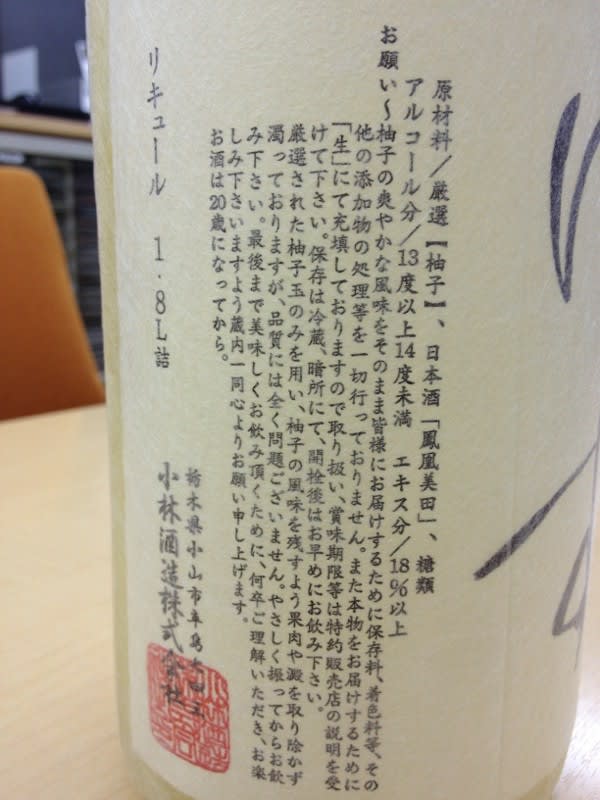 原材料／厳選【柚子】、日本酒「鳳凰美田」、糖類
アルコール分／13度以上14度未満　エキス分／18%以上
お願い〜柚子の爽やかな風味をそのまま皆様にお届けするために保存料、着色料等、その
他の添加物の処理等を一切行っておりません。また本物をお届けするために
「生」にて充填しておりますので取り扱い、賞味期限等は特約販売店の説明を受
けて下さい。保存は冷蔵、暗所にて、開栓後はお早めにお飲み下さい。
厳選された柚子玉のみを用い、柚子の風味を残すよう果肉や澱を取り除かず
濁っておりますが、品質には全く問題ございません。やさしく振ってからお飲
み下さい。最後まで美味しくお飲み頂くために、何卒ご理解いただき、お楽
しみ下さいますよう蔵内一同心よりお願い申し上げます。
お酒は20歳になってから。
リキュール　1.8L詰
栃木県小山市卒島
小林酒造株式会社